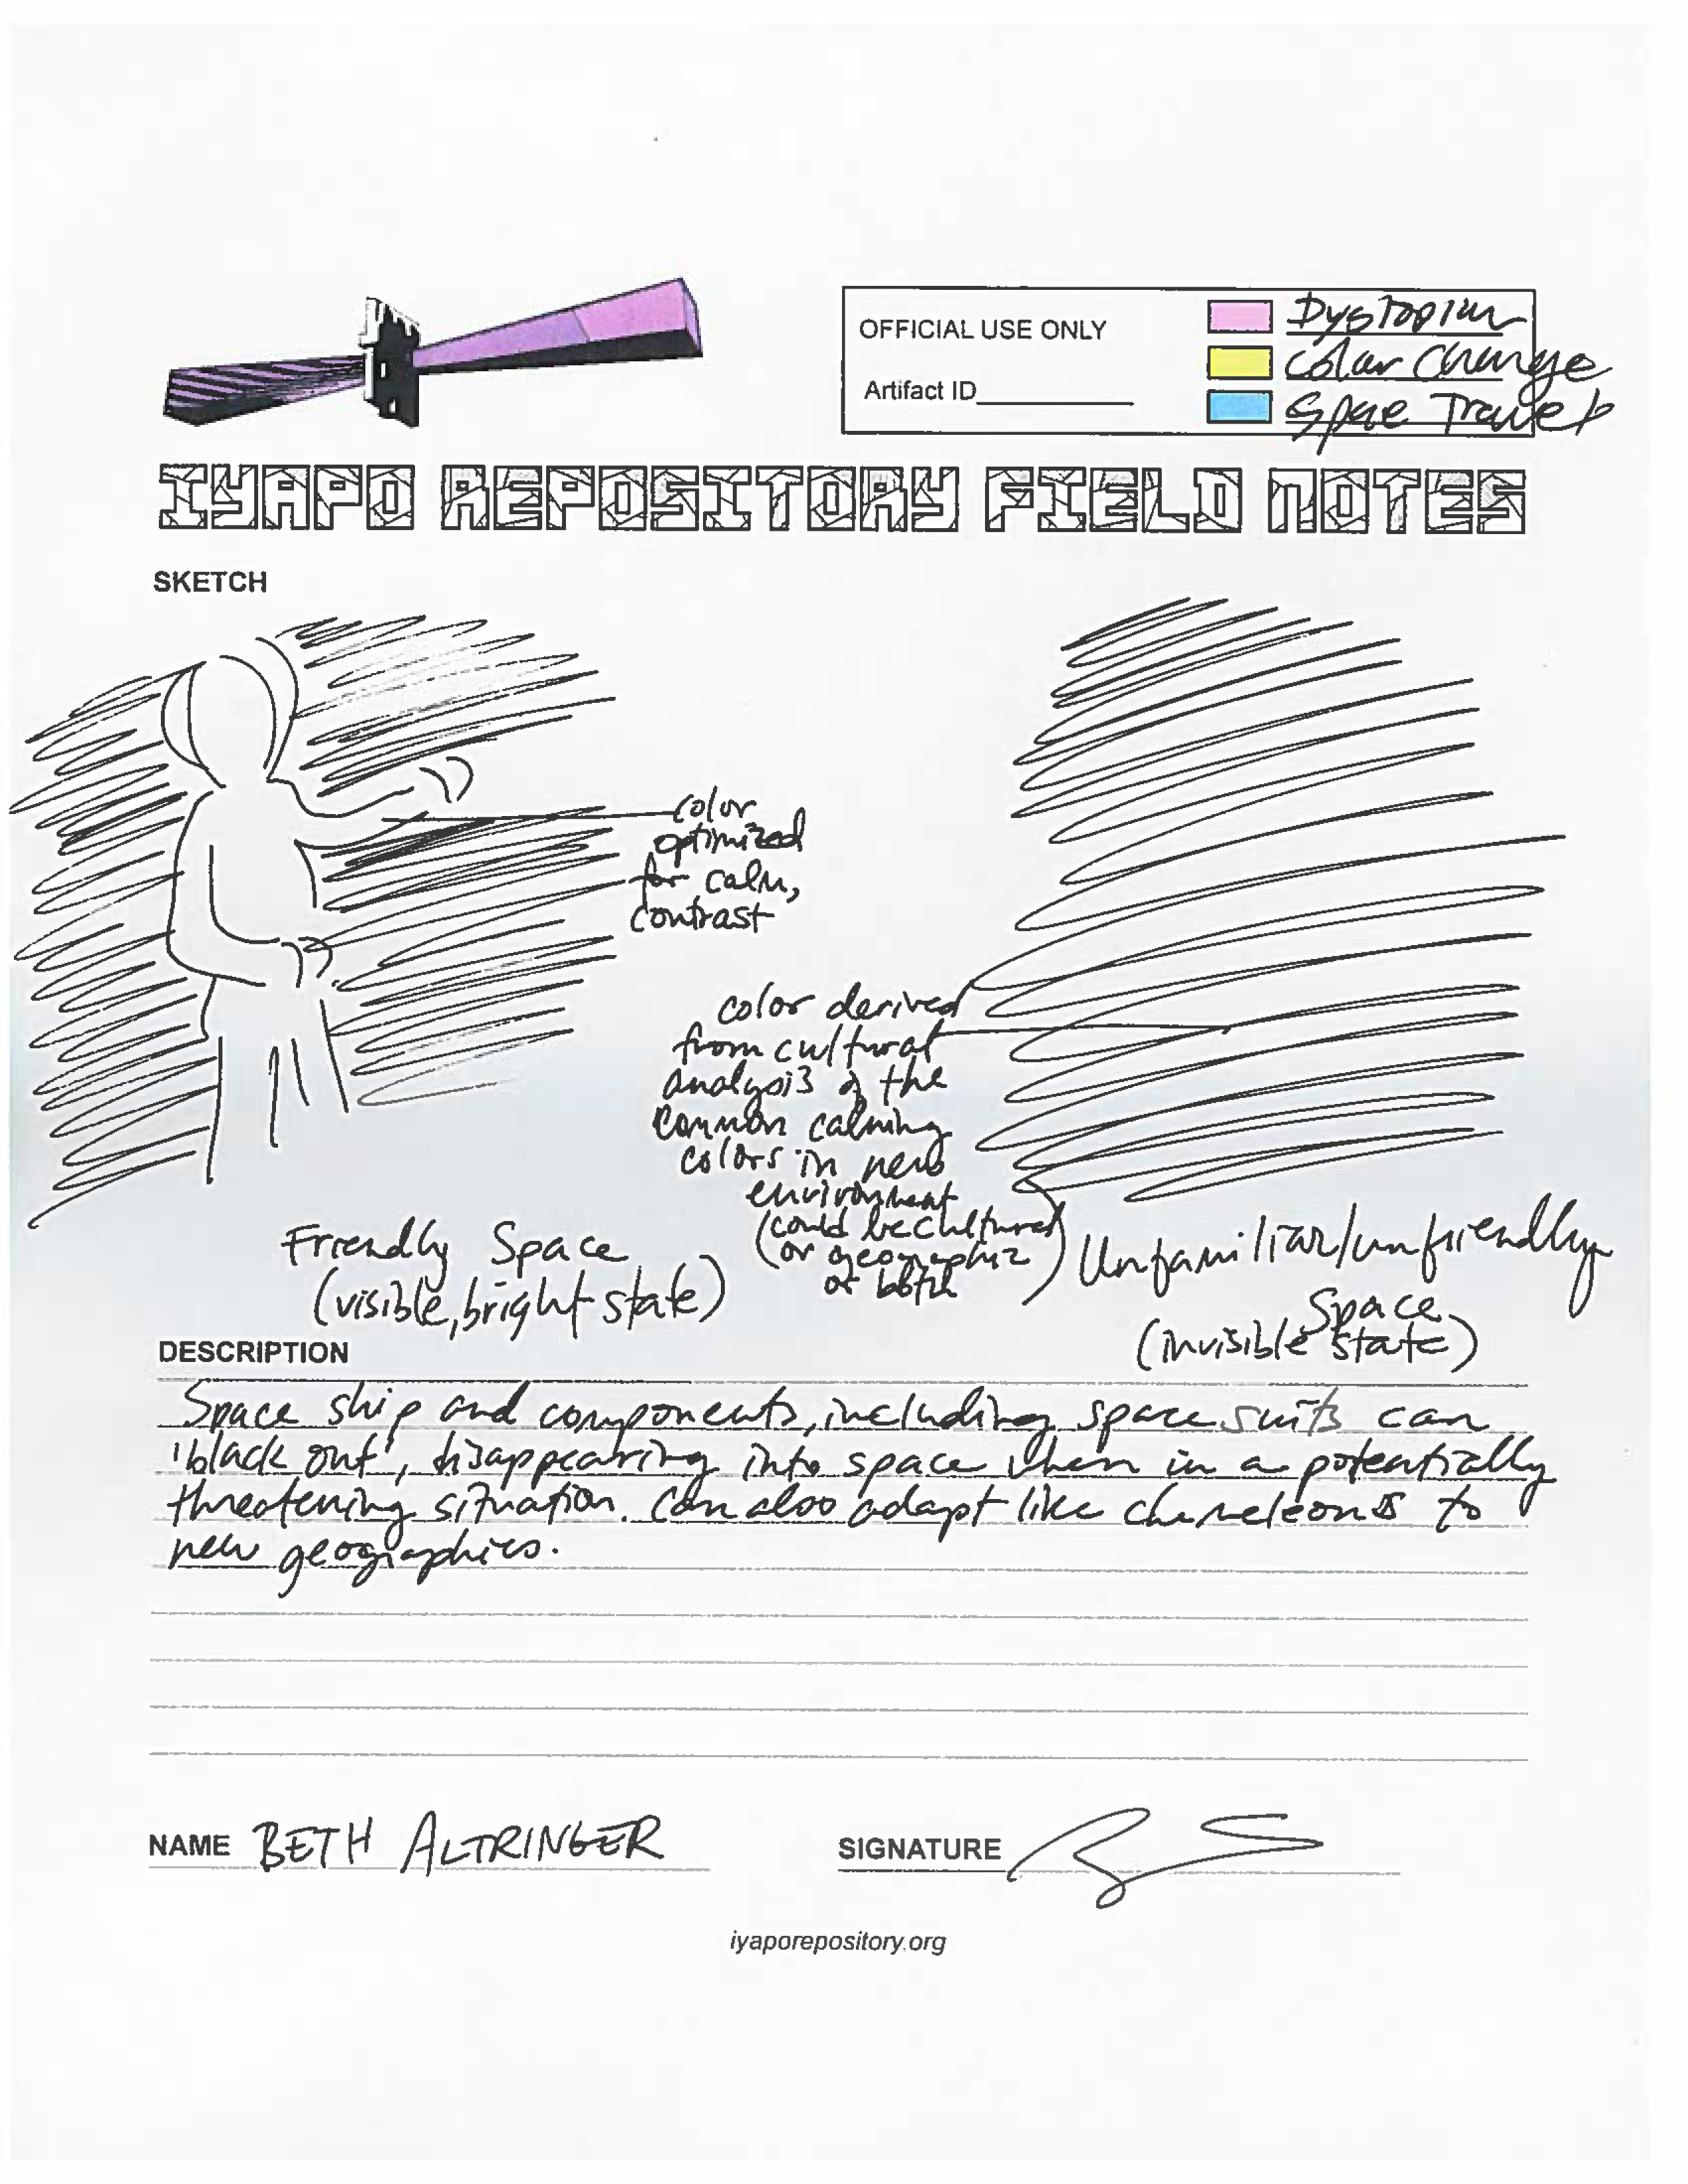 OFFICIAL USE ONLY
Artifact ID
Dystopian
Color Change
Space Travel
IYAPO REPOSITORY FIELD NOTES
SKETCH
color
optimized
for calm,
contrast
color derived
from cultural
analysis of the
common calming
colors in new
environment
(could be cultural
or geographic
or both)
Friendly Space
(visible, bright state)
Unfamiliar/unfriendly
Space
(invisible state)
DESCRIPTION
Space ship and components, including space suits can
'black out', disappearing into space when in a potentially
threatening situation. Can also adapt like chameleons to
new geographies.
NAME BETH ALTRINGER
SIGNATURE
iyaporepository.org